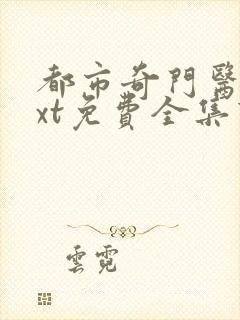 都市奇門醫
xt免費全集
雲霓